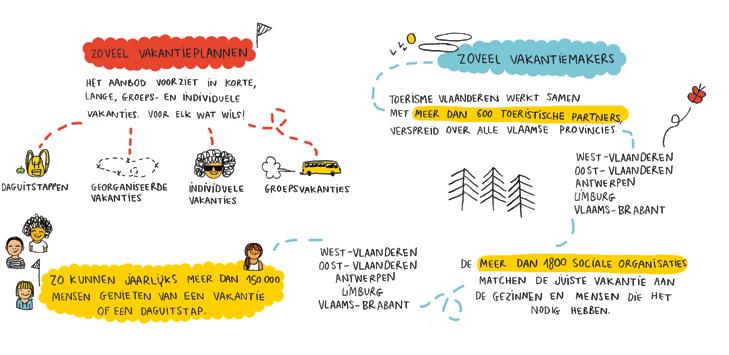 ZOVEEL VAKANTIEPLANNEN
HET AANBOD VOORZIET IN KORTE,
LANGE, GROEPS- EN INDIVIDUELE
VAKANTIES. VOOR ELK WAT WILS!
DAGUITSTAPPEN
GEORGANISEERDE
VAKANTIES
INDIVIDUELE
VAKANTIES
GROEPSVAKANTIES
ZOVEEL VAKANTIEMAKERS
TOERISME VLAANDEREN WERKT SAMEN
MET MEER DAN 600 TOERISTISCHE PARTNERS,
VERSPREID OVER ALLE VLAAMSE PROVINCIES
WEST-VLAANDEREN
OOST-VLAANDEREN
ANTWERPEN
LIMBURG
VLAAMS-BRABANT
DE MEER DAN 1800 SOCIALE ORGANISATIES
MATCHEN DE JUISTE VAKANTIE AAN
DE GEZINNEN EN MENSEN DIE HET
NODIG HEBBEN.
WEST-VLAANDEREN
OOST-VLAANDEREN
ANTWERPEN
LIMBURG
VLAAMS-BRABANT
ZO KUNNEN JAARLIJKS MEER DAN 150 000
MENSEN GENIETEN VAN EEN VAKANTIE
OF EEN DAGUITSTAP.